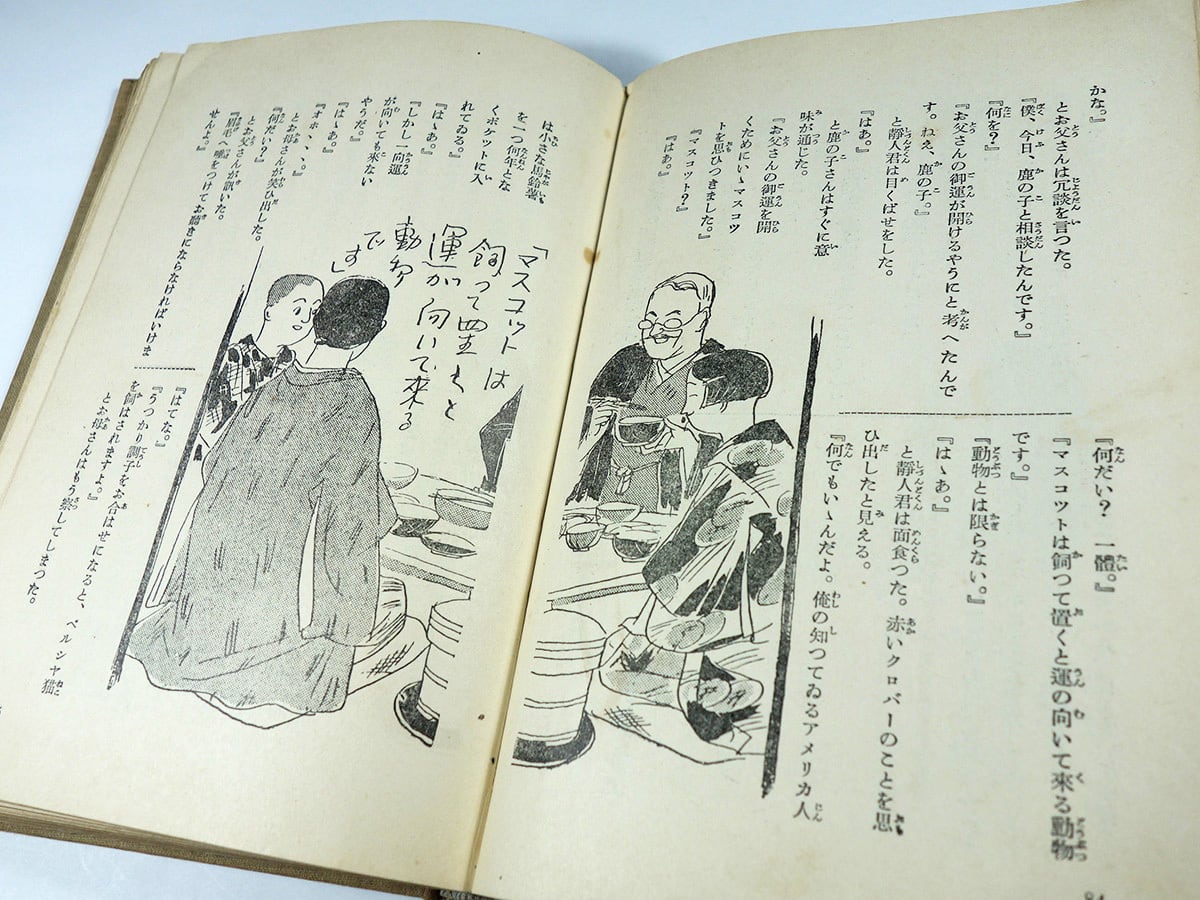 かな。』
とお父さんは冗談を言つた。
『僕、今日、鹿の子と相談したんです。』
『何を?』
『お父さんの御運が開けるやうにと考へたんで
す。ねえ、鹿の子。』
『はあ。』
と靜人君は目くばせをした。
と鹿の子さんはすぐに意
味が通じた。
『お父さんの御運を開
くためにいゝマスコツ
トを思ひつきました。』
『マスコツト?』
『はあ。』
『何だい? 一體。』
『マスコツトは飼つて置くと運の向いて來る動物
です。』
『動物とは限らない。』
『はゝあ。』
と靜人君は面食つた。赤いクロバーのことを思
ひ出したと見える。
『何でもいゝんだよ。俺の知つてゐるアメリカ人
は小さな馬鈴薯
を一つ何年とな
くポケットに入
れてゐる。』
『はゝあ。』
『しかし一向運
が向いても來ない
やうだ。』
『はゝあ。』
『オホヽヽ。』
とお母さんが笑ひ出した。
『何だい?』
とお父さんが訊いた。
『眉毛へ唾をつけてお聽きにならなければいけま
せんよ。』
「マスコットは
飼って置くと
運が向いて來る
動物
です」
『はてな。』
『うつかり調子をお合はせになると、ペルシヤ猫
を飼はされますよ。』
とお母さんはもう察してしまつた。